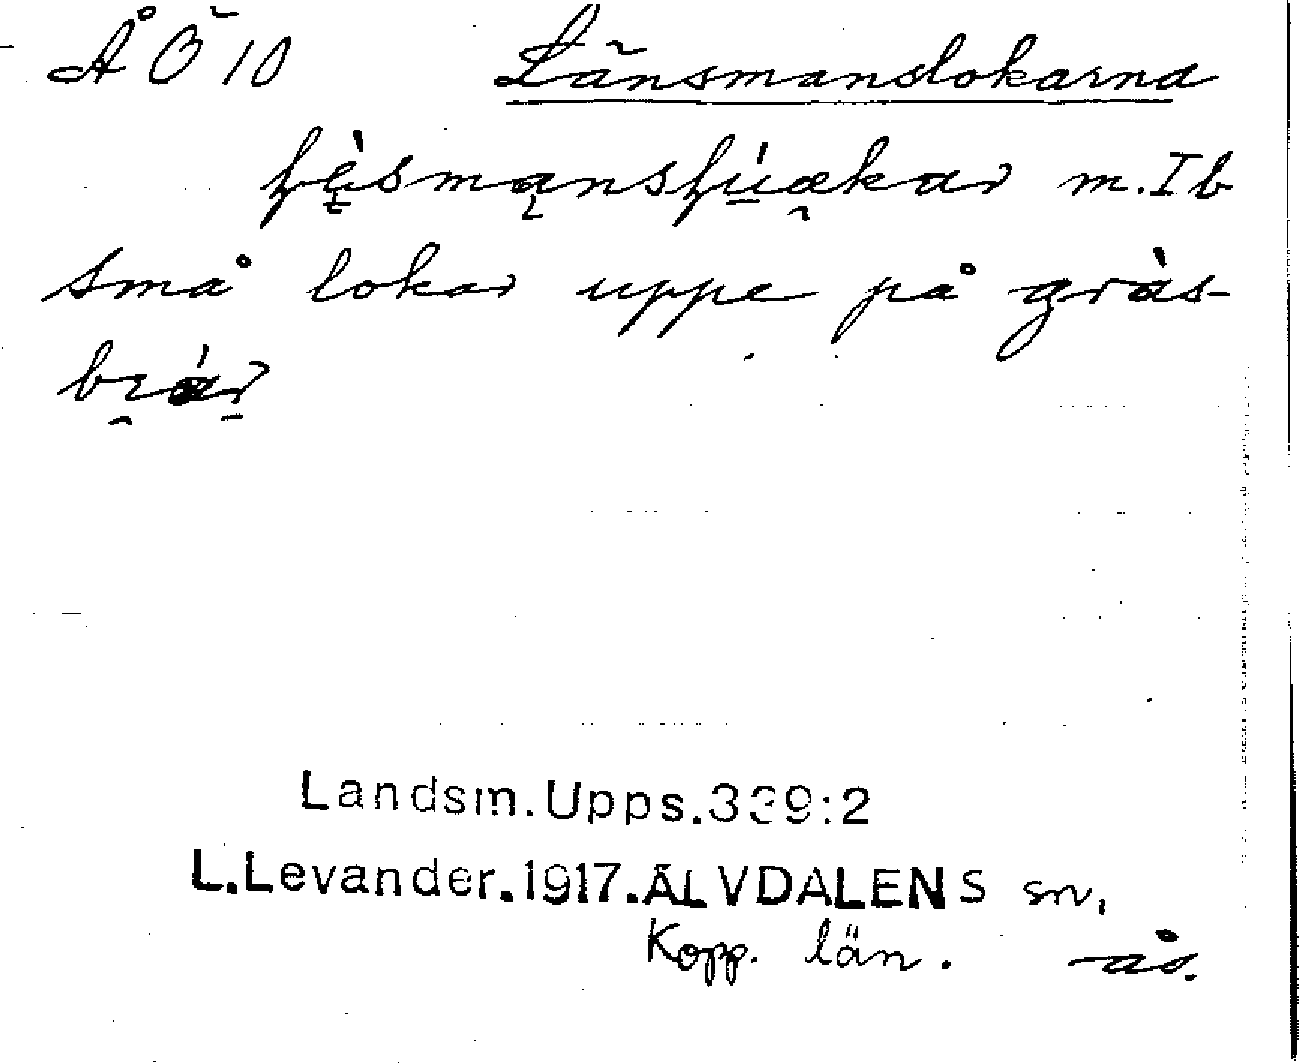 ÅÖ10 Länsmanslokarna
m. Ib
små lokar uppe på gràs-
Landsm.Upps.339:2
L.Levander.1917.ÄLVDALENS sn,
Kopp. län. ås.